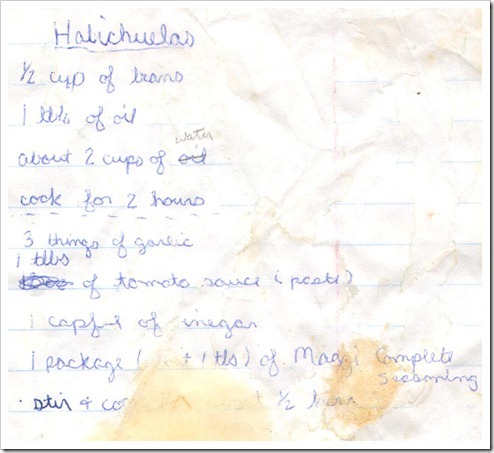 Habichuelas
1/2 cup of beans
1 tbls of oil
about 2 cups of water
cook for 2 hours
3 things of garlic
1 tlbs
of tomato sauce (paste)
1 capful of vinegar
1 package ( 1 tls) of Maggi Complete
Seasoning
stir & 1/2 hour